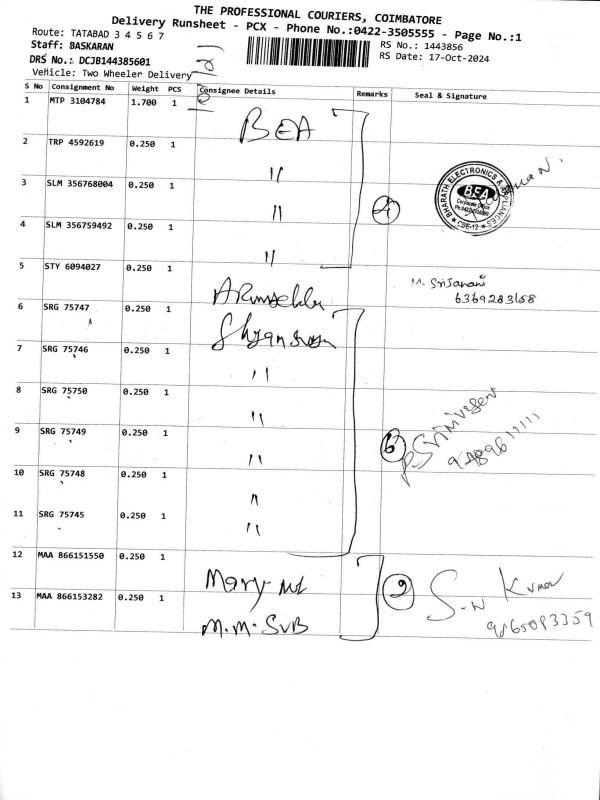 THE PROFESSIONAL COURIERS, COIMBATORE
Delivery Runsheet - PCX - Phone No.:0422-3505555 - Page No.:1
Route: TATABAD 3 4 5 6 7
Staff: BASKARAN
RS No.: 1443856
DRS No.: DCJB144385601
RS Date: 17-Oct-2024
Vehicle: Two Wheeler Delivery
S No Consignment No Weight PCS Consignee Details Remarks Seal & Signature
1 MTP 3104784 1.700 1 BEA
2 TRP 4592619 0.250 1 "
3 SLM 356768004 0.250 1 " 4
BHARATH ELECTRONICS & APPLIANCES
BEA
Corporate Office
CBE-12
4 SLM 356759492 0.250 1 "
5 STY 6094027 0.250 1
M. Srijanani
6369283158
6 SRG 75747 0.250 1
7 SRG 75746 0.250 1 "
8 SRG 75750 0.250 1 "
9 SRG 75749 0.250 1 " 6
P. Srinivasan
10 SRG 75748 0.250 1 "
11 SRG 75745 0.250 1 "
12 MAA 866151550 0.250 1 Mary 2
S-N Kumar
13 MAA 866153282 0.250 1 M.M. SVB
9865093359